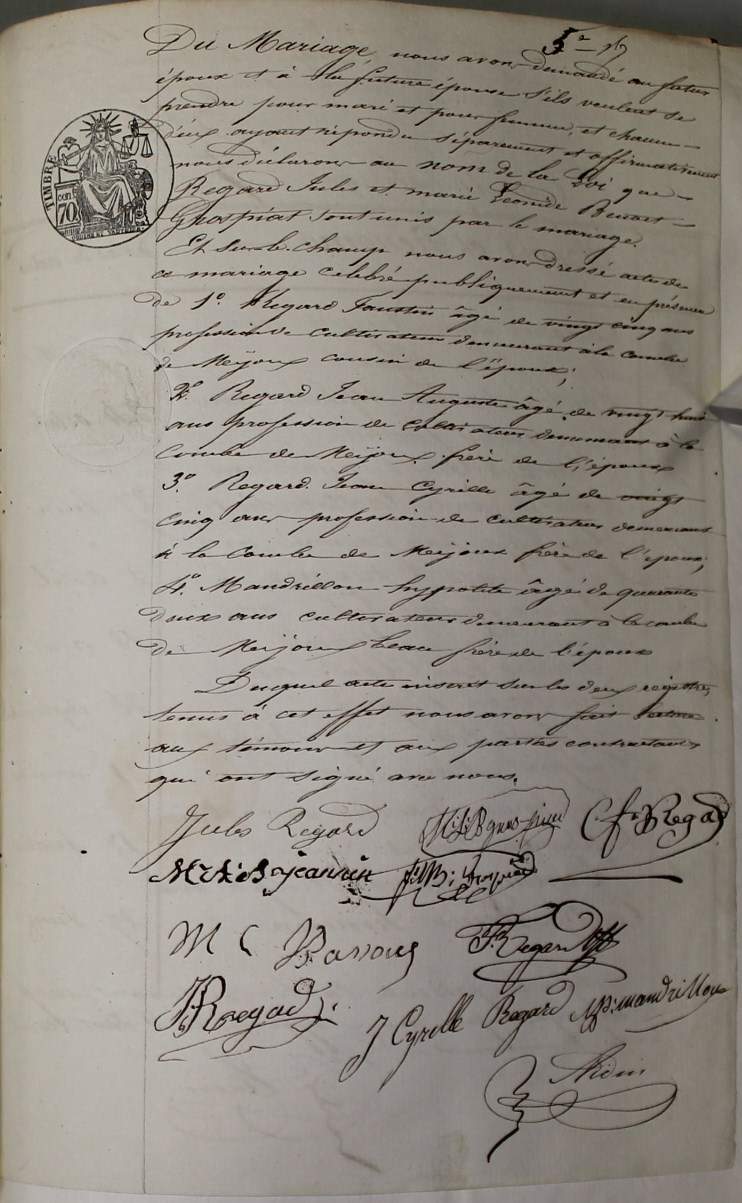 5e
Du Mariage, nous avons demandé au futur
époux et à la future épouse s'ils veulent se
prendre pour mari et pour femme, et chacun
d'eux ayant répondu séparément et affirmativement
nous déclarons au nom de la Loi que
Regard Jules et marie Léonide Benoit
Grospiat sont unis par le mariage.
Et sur le champ nous avons dressé acte de
ce mariage célébré publiquement et en présence
de 1º Regard Faustin âgé de vingt cinq ans
profession de cultivateur demeurant à la combe
de Meijoux cousin de l'époux;
2º Regard Jean Auguste âgé de vingt huit
ans profession de cultivateur demeurant à la
Combe de Meijoux frère de l'époux
3º Regard Jean Cyrille âgé de vingt
cinq ans profession de cultivateur demeurant
à la Combe de Meijoux frère de l'époux;
4º Mandrillon hypolite âgé de quarante
deux ans cultivateur demeurant à la combe
de Meijoux beau frère de l'époux
Duquel acte inscrit sur les deux registres
tenus à cet effet nous avons fait lecture
aux témoins et aux parties contractantes
qui ont signé avec nous.
TIMBRE
70
Jules Regard
Cf. Regad
Jeannin
M C
F Regard
J Regad
J Cyrille Regard
hp. mandrillon